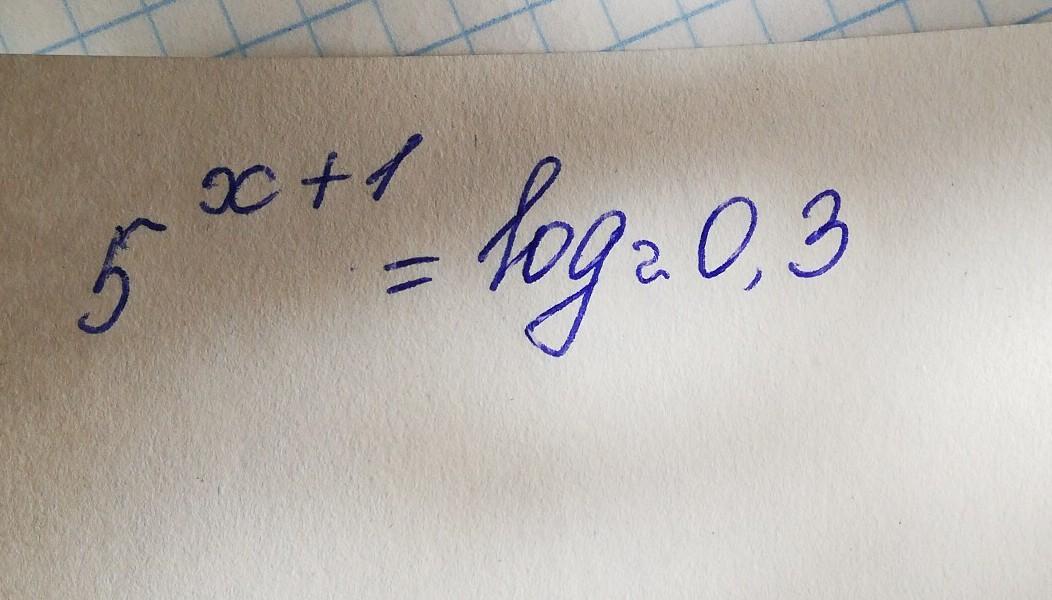 5^{x+1} = log₂ 0,3